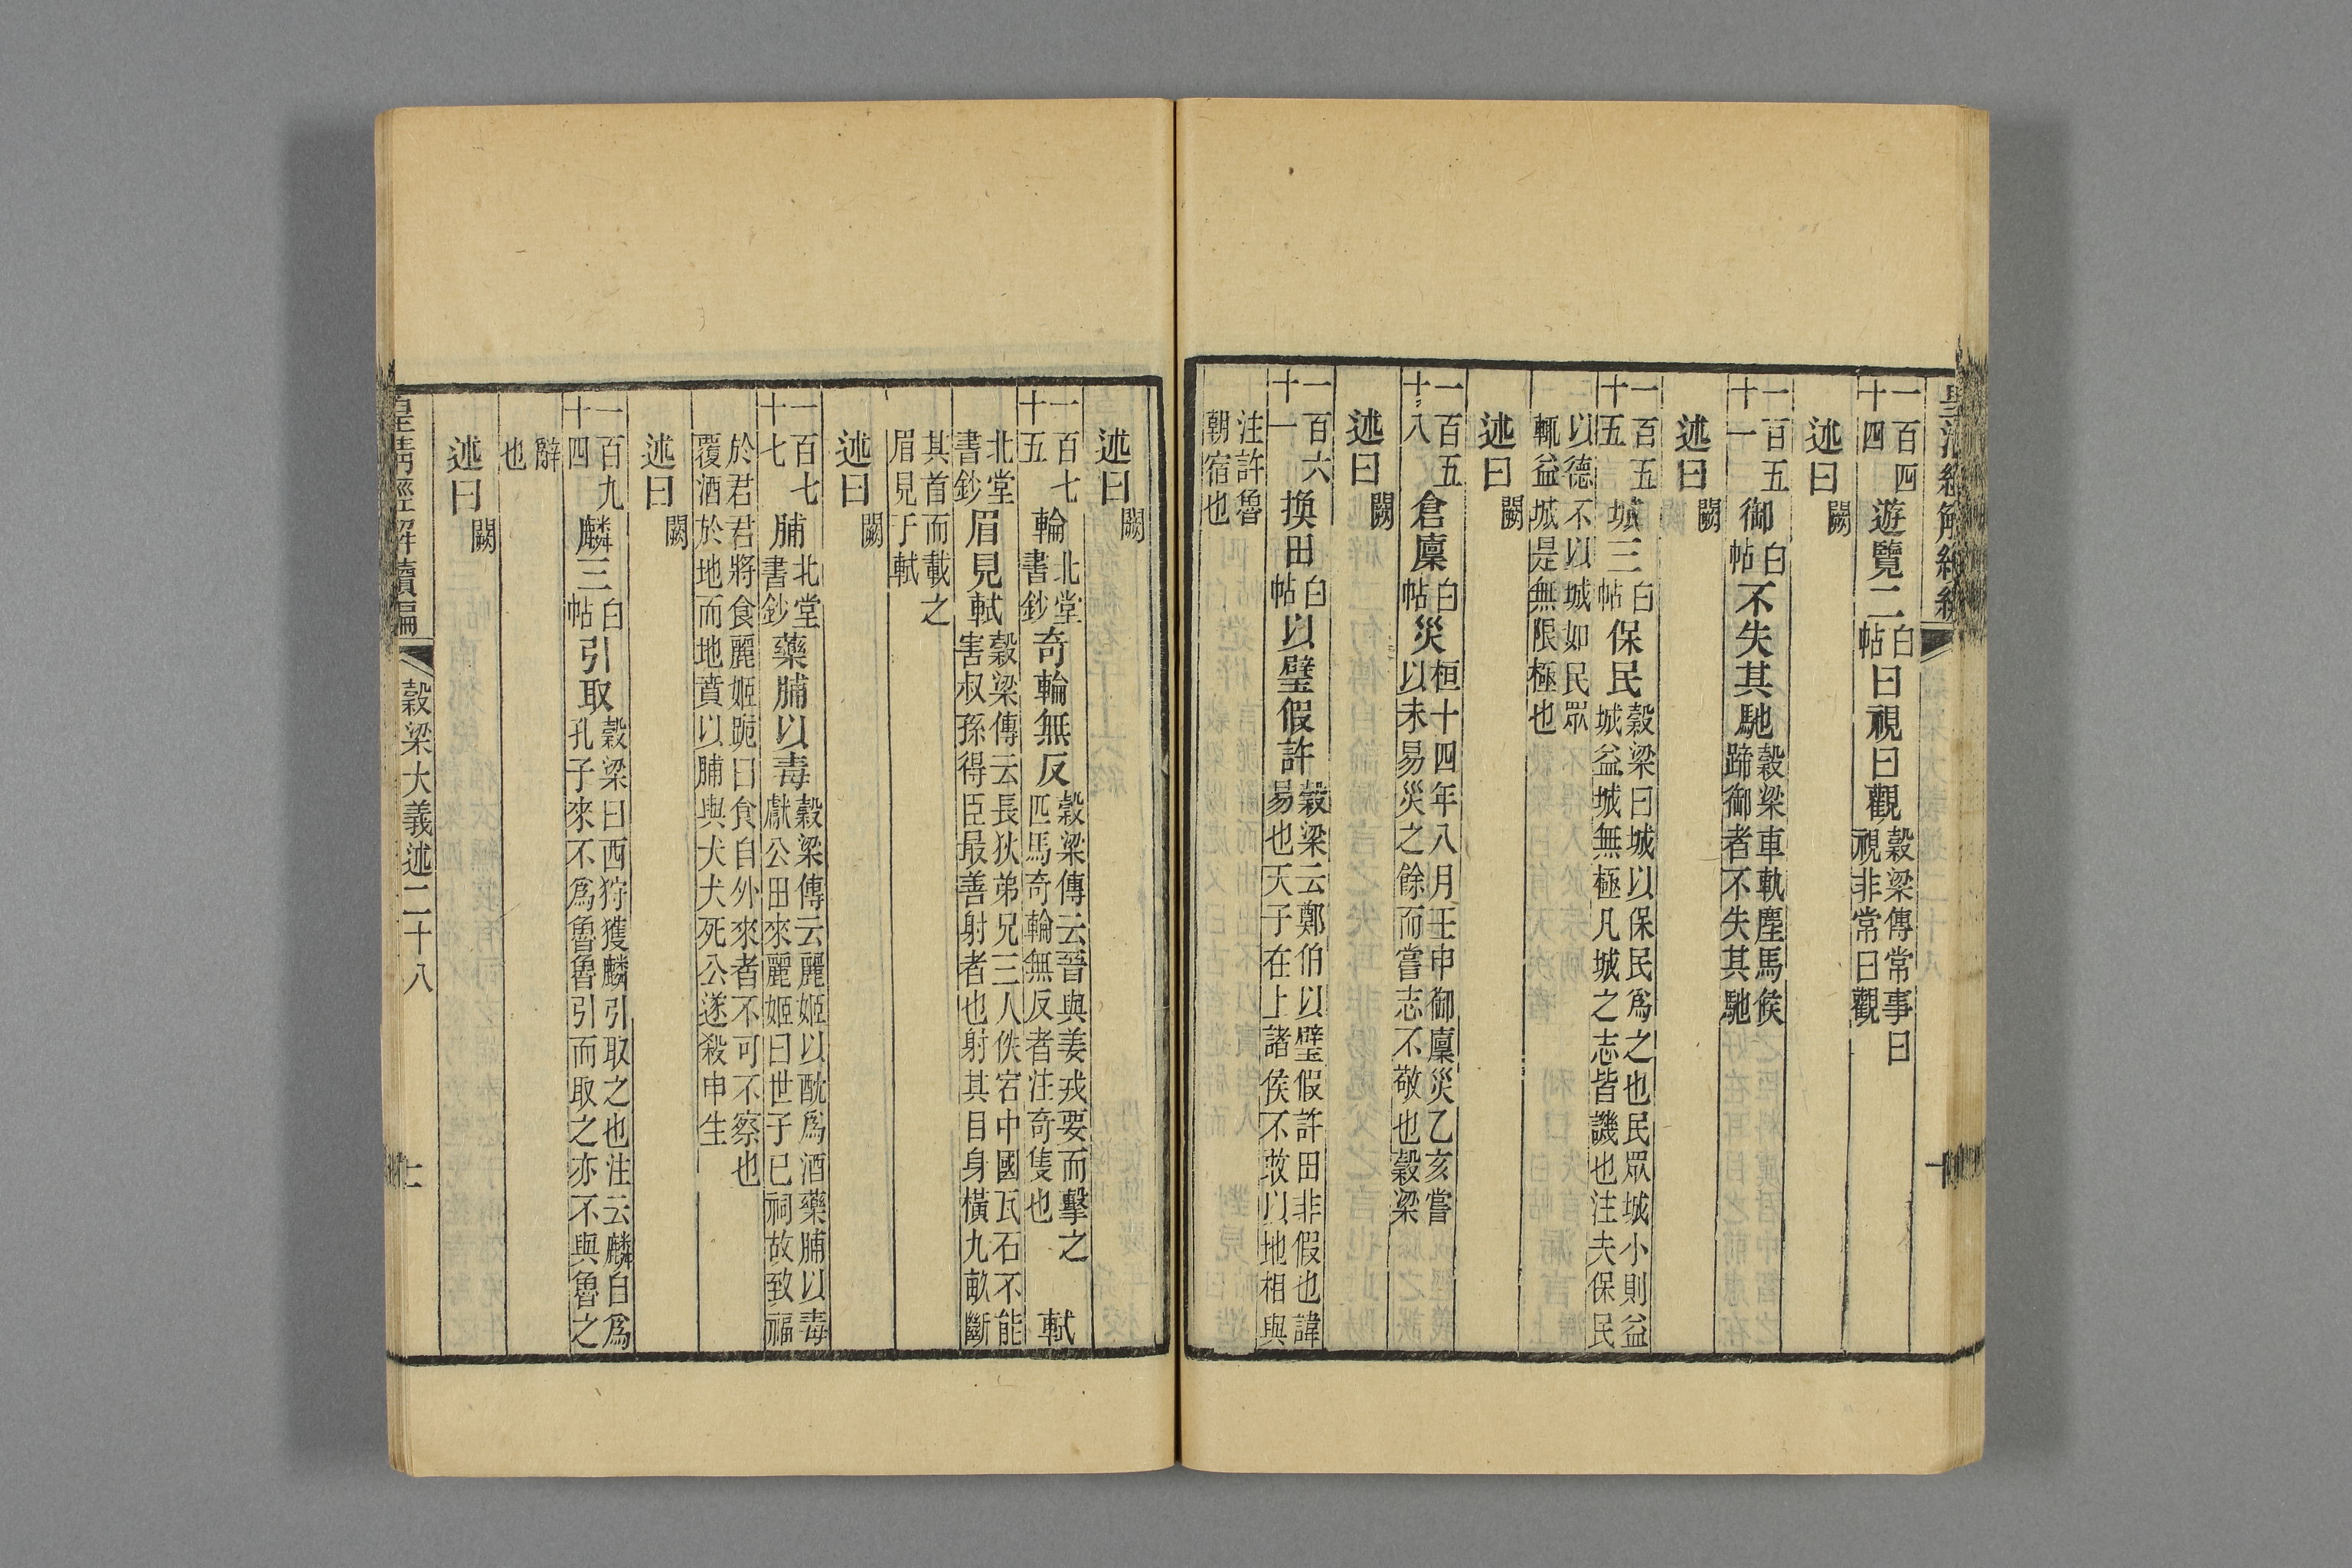 一百四十四遊覽二白帖曰視曰觀穀梁傳常事曰視非常曰觀
述曰闕
一百五十一御白帖不失其馳穀梁車軌塵馬候蹄御者不失其馳
述曰闕
一百五十五城三白帖保民穀梁曰城以保民爲之也民眾城小則益城益城無極凡城之志皆譏也注夫保民
以德不以城如民眾輒益城是無限極也
述曰闕
一百五十八倉廩白帖災桓十四年八月壬申御廩災乙亥嘗以未易災之餘而嘗志不敬也穀梁
述曰闕
一百六十一換田白帖以璧假許穀梁云鄭伯以璧假許田非假也諱易也天子在上諸侯不敢以地相與
注許魯朝宿也
述曰闕
一百七十五輪北堂書鈔奇輪無反穀梁傳云晉與姜戎要而擊之匹馬奇輪無反者注奇隻也 軾
北堂書鈔眉見軾穀梁傳云長狄弟兄三人佚宕中國瓦石不能害叔孫得臣最善射者也射其目身橫九畝斷
其首而載之眉見于軾
述曰闕
一百七十七脯北堂書鈔藥脯以毒穀梁傳云麗姬以酖爲酒藥脯以毒獻公田來麗姬曰世子已祠故致福
於君君將食麗姬跪曰食自外來者不可不察也覆酒於地而地賁以脯與犬犬死公遂殺申生
述曰闕
一百九十四麟三白帖引取穀梁曰西狩獲麟引取之也注云麟自爲孔子來不爲魯魯引而取之亦不與魯之
辭也
述曰闕
皇淸經解續編 穀梁大義述二十八